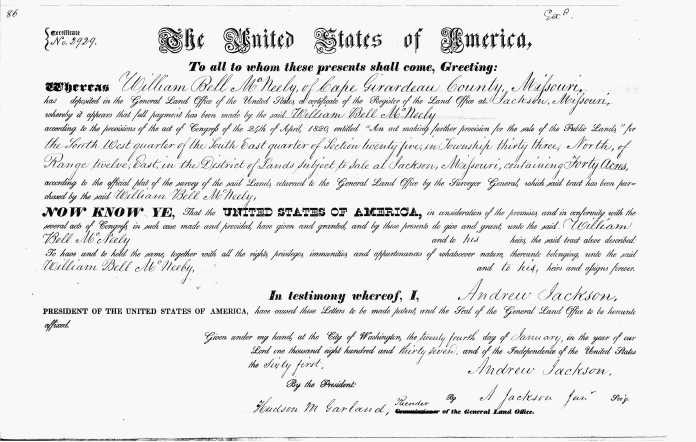 86
Exd.
Certificate
No. 2929.
The United States of America,
To all to whom these presents shall come, Greeting:
Whereas William Bell McNeely, of Cape Girardeau County, Missouri,
has deposited in the General Land Office of the United States, a certificate of the Register of the Land Office at Jackson, Missouri,
whereby it appears that full payment has been made by the said William Bell McNeely
according to the provisions of the act of Congress of the 24th of April, 1820, entitled "An act making further provision for the sale of the Public Lands," for
the South West quarter of the South East quarter of Section twenty five, in Township thirty three, North, of
Range twelve, East, in the District of Lands subject to sale at Jackson, Missouri, containing Forty Acres,
according to the official plat of the survey of the said Lands, returned to the General Land Office by the Surveyor General, which said tract has been pur-
chased by the said William Bell McNeely,
NOW KNOW YE, That the UNITED STATES OF AMERICA, in consideration of the premises, and in conformity with the
several acts of Congress, in such case made and provided, have given and granted, and by these presents do give and grant, unto the said William
Bell McNeely and to his heirs, the said tract above described:
To have and to hold the same, together with all the rights, privileges, immunities, and appurtenances of whatsoever nature, thereunto belonging, unto the said
William Bell McNeely, and to his, heirs and assigns forever.
In testimony whereof, I, Andrew Jackson,
PRESIDENT OF THE UNITED STATES OF AMERICA, have caused these Letters to be made patent, and the Seal of the General Land Office to be hereunto
affixed.
Given under my hand, at the City of Washington, the twenty fourth day of January, in the year of our
Lord one thousand eight hundred and thirty seven, and of the Independence of the United States
the Sixty first.
Andrew Jackson.
By the President:
By A Jackson Junr Secy.
Hudson M Garland, Recorder Commissioner of the General Land Office.